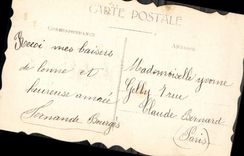 CARTE POSTALE
CORRESPONDANCE
ADRESSE
Reçoi mes baisers
de bonne et
heureuse année
Fernande Bourges
Mademoiselle Yvonne
Gilly 7 rue
Claude Bernard
(Paris)